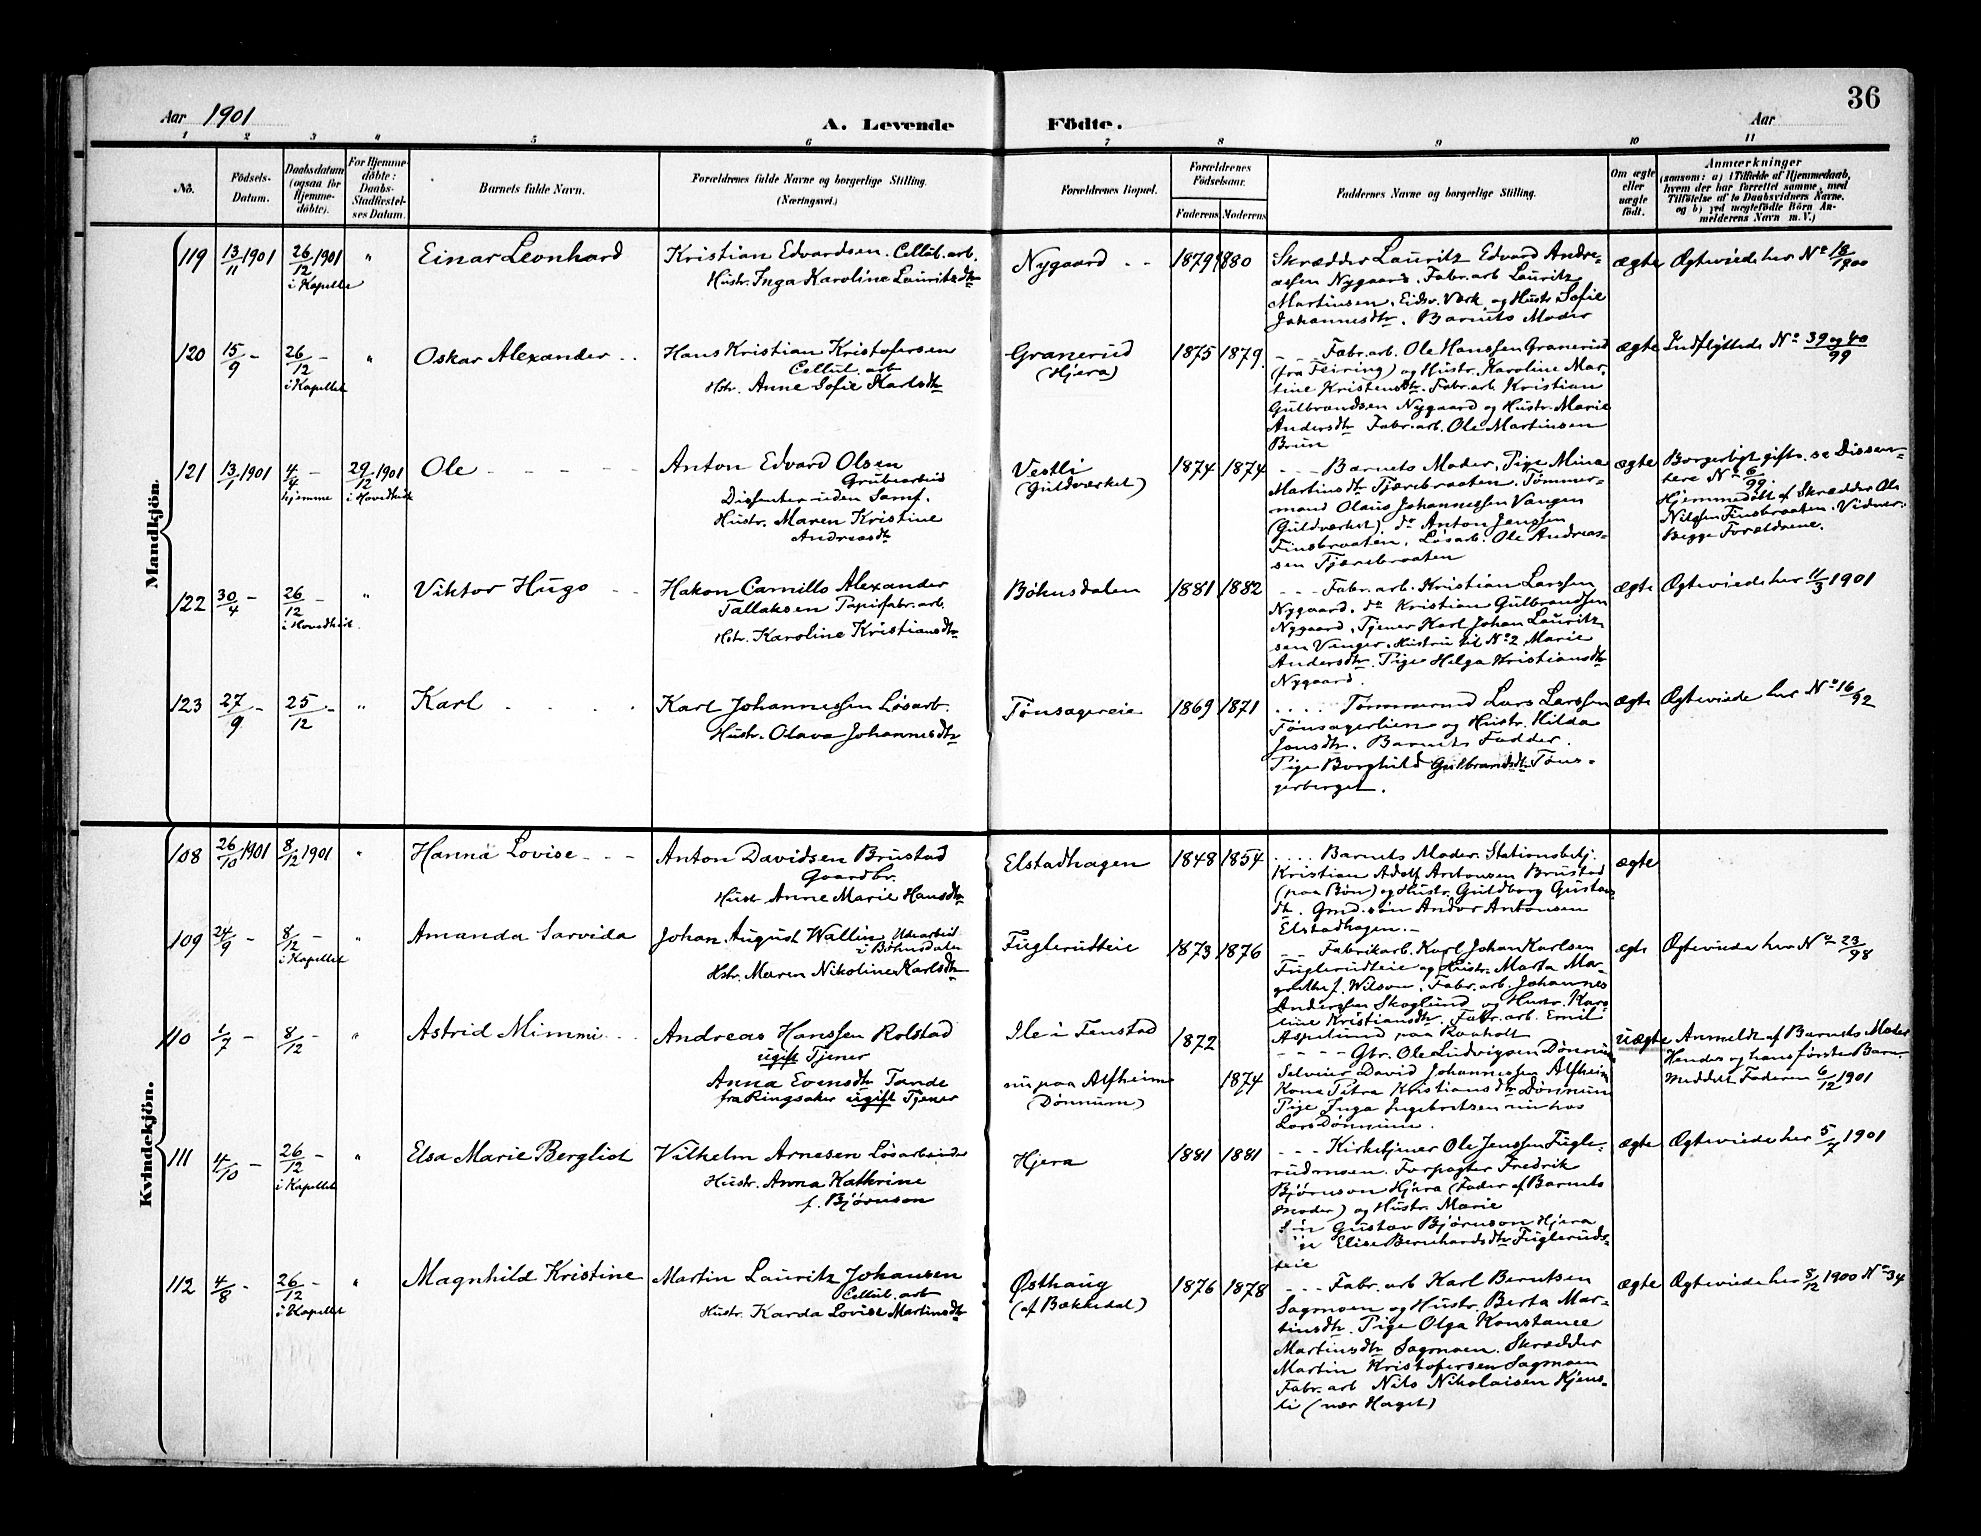 36
Aar 1901
A. Levende Födte.
Aar
1 2 3 4 5 6 7 8 9 10 11
No.
Födsels-Datum.
Daabsdatum (ogsaa for Hjemme-döbte).
For Hjemme-döbte: Daabs-Stadfæstel-ses Datum.
Barnets fulde Navn.
Forældrenes fulde Navne og borgerlige Stilling. (Næringsvei.)
Forældrenes Bopæl.
Forældrenes Födselsaar.
Faderens Moderens
Faddernes Navne og borgerlige Stilling.
Om ægte eller uægte födt.
Anmærkninger
(saasom: a) i Tilfælde af Hjemmedaab,
hvem der har forrettet samme, med
Tilföielse af to Daabsvidners Navne.
og b) ved uægtefödte Börn An-
melderens Navn m. V.)
Mandkjön.
119 13/11 1901 26/12 1901 i Kapellet " Einar Leonhard
Kristian Edvardsen. Cellul. arb.
Hustr. Inga Karoline Lauritsdtr
Nygaard - - 1879 1880
Skrædder Lauritz Edvard Andre-
assen Nygaard. Fabr. arb. Lauritz
Martinsen, Eidsv. Værk og Hustr. Sofie
Johannesdtr. Barnets Moder
ægte Ægteviede her No 18/1900
120 15/9 - 26/12 - i Kapellet " Oskar Alexander - -
Hans Kristian Kristofersen
Cellul. arb
Hstr. Anne Sofie Karlsdtr
Granerud
(Hjera)
1875 1879.
- - Fabr. arb. Ole Hanssen Granerud
(fra Feiring) og Hustr. Karoline Mar-
tine Kristensdtr. Fabr. arb. Kristian
Gulbrandsen Nygaard og Hustr. Marie
Andersdtr Fabr. arb. Ole Martinsen
Brun
ægte Indflyttede No 39 og 40/99
121 13/1 1901 4/4 - hjemme 29/12 1901 i Hovedkirk Ole - - - - -
Anton Edvard Olsen
Grubearbeid
Dissenter uden Samf.
Hustr. Maren Kristine
Andreasdtr
Vestli
(Guldværket)
1874 1874
- - - Barnets Moder, Pige Mina
Martinsdtr Tjærebraaten. Tømmer-
mand Olaus Johannessen Vangen
(Guldværket), do Anton Jenssen
Finsbraaten. Løsarb. Ole Andreas-
sen Tjærebraaten
ægte Borgerligt gifte. se Dissen-
tere No 6/99.
Hjemmedøbt af Skrædder Ole
Nilssen Finsbraaten. Vidner:
Begge Forældrene.
122 30/4 - 26/12 - i Hovedkirk. " Viktor Hugo - -
Hakon Camillo Alexander
Tallaksen Papirfabr. arb.
Hstr. Karoline Kristiansdtr
Bøhnsdalen 1881 1882
- - - Fabr. arb. Kristian Larssen
Nygaard, do Kristian Gulbrandsen
Nygaard, Tjener Karl Johan Lauritz-
sen Vanger, Hustru til No 2 Marie
Andersdtr. Pige Helga Kristiansdtr
Nygaard.
ægte Ægteviede her 11/3 1901
123 27/9 - 25/12 - " Karl - - - -
Karl Johannessen Løsarb.
Hustr. Olava Johannesdtr
Tønsagereie 1869 1871
. . . . . Tømmermd Lars Larssen
Tønsagerlien og Hustr. Hilda
Jonsdtr. Barnets Fadder.
Pige Borghild Gulbrandsdtr Tøns-
gerberget.
ægte Ægteviede her No 16/92
Kvindekjön.
108 26/10 1901 8/12 1901 " Hanna Lovise - - -
Anton Davidsen Brustad
Gaardbr.
Hustr Anne Marie Hansdtr
Elstadhagen 1848 1854
. . . . Barnets Moder. Stationsbetj.
Kristian Adolf Antonsen Brustad
(paa Bøn) og Hustr. Guldborg Gustav-
dtr. Gmd. søn Andor Antonsen
Elstadhagen. -
ægte
109 24/9 - 8/12 - i Kapellet " Amanda Sarvida
Johan August Wallin, Udearbeid i Bøhnsdalen
Hstr. Maren Nikoline Karlsdtr
Fuglerudteie 1873 1876
- - Fabrikarb. Karl Johan Karlsen
Fuglerudteie og Hustr. Marta Ma-
grethe f. Wilson, Fabr. arb. Johannes
Anderssen Skoglund og Hustr. Karo
line Kristiansdtr. Fabr. arb. Emil
Aspelund paa Raaholt
ægte Ægteviede her No 23/98
110 1/7 - 8/12 - " Astrid Mimmi - - -
Andreas Hanssen Rolstad
ugift Tjener
Anna Evensdtr Tande
fra Ringsaker ugift Tjener
Ile i Fenstad
nu paa Alfheim
(Dønnum)
1872
1874
- - - - Gbr. Ole Ludvigsen Dønnum
Selveier David Johannessen Alfheim
Kone Petra Kristiansdtr Dønnum
Pige Inga Ingebretsen nu hos
Lars Dønnum.
uægte Anmeldt af Barnets Moder
Hendes og hans første Barn
Meddelt Faderen 6/12 1901
111 4/10 - 26/12 - i Kapellet " Elsa Marie Bergliot
Vilhelm Arnesen Løsarbeider
Hustr. Anna Kathrine
f. Bjørnson
Hjera 1881 1881
- - - Kirketjener Ole Jenssen Fugle-
rudmoen. Forpagter Fredrik
Bjørnson Hjera (Fader af Barnets
Moder) og Hustr. Marie
Gustav Bjørnson Hjera
Elise Bernhardsdtr Fugleruds-
teie
ægte Ægteviede her 5/7 1901
112 4/8 - 26/12 - i Kapellet " Magnhild Kristine
Martin Lauritz Johansen
Cellul. arb
Hustr. Karda Lovise Martinsdtr
Østhaug
(af Bækkedal)
1876 1878
- - - Fabr. arb Karl Berntsen
Sagmoen og Hustr. Berta Mar-
tinsdtr. Pige Olga Konstance
Martinsdtr Sagmoen. Skrædder
Martin Kristofersen Sagmoen
Fabr. arb Nils Nikolaisen Kjens-
li (nær Haget)
ægte Ægteviede her 8/12 1900 No 34